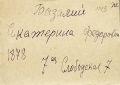 Базилий
Екатерина Федоровна
1898 7ая Слободская 7